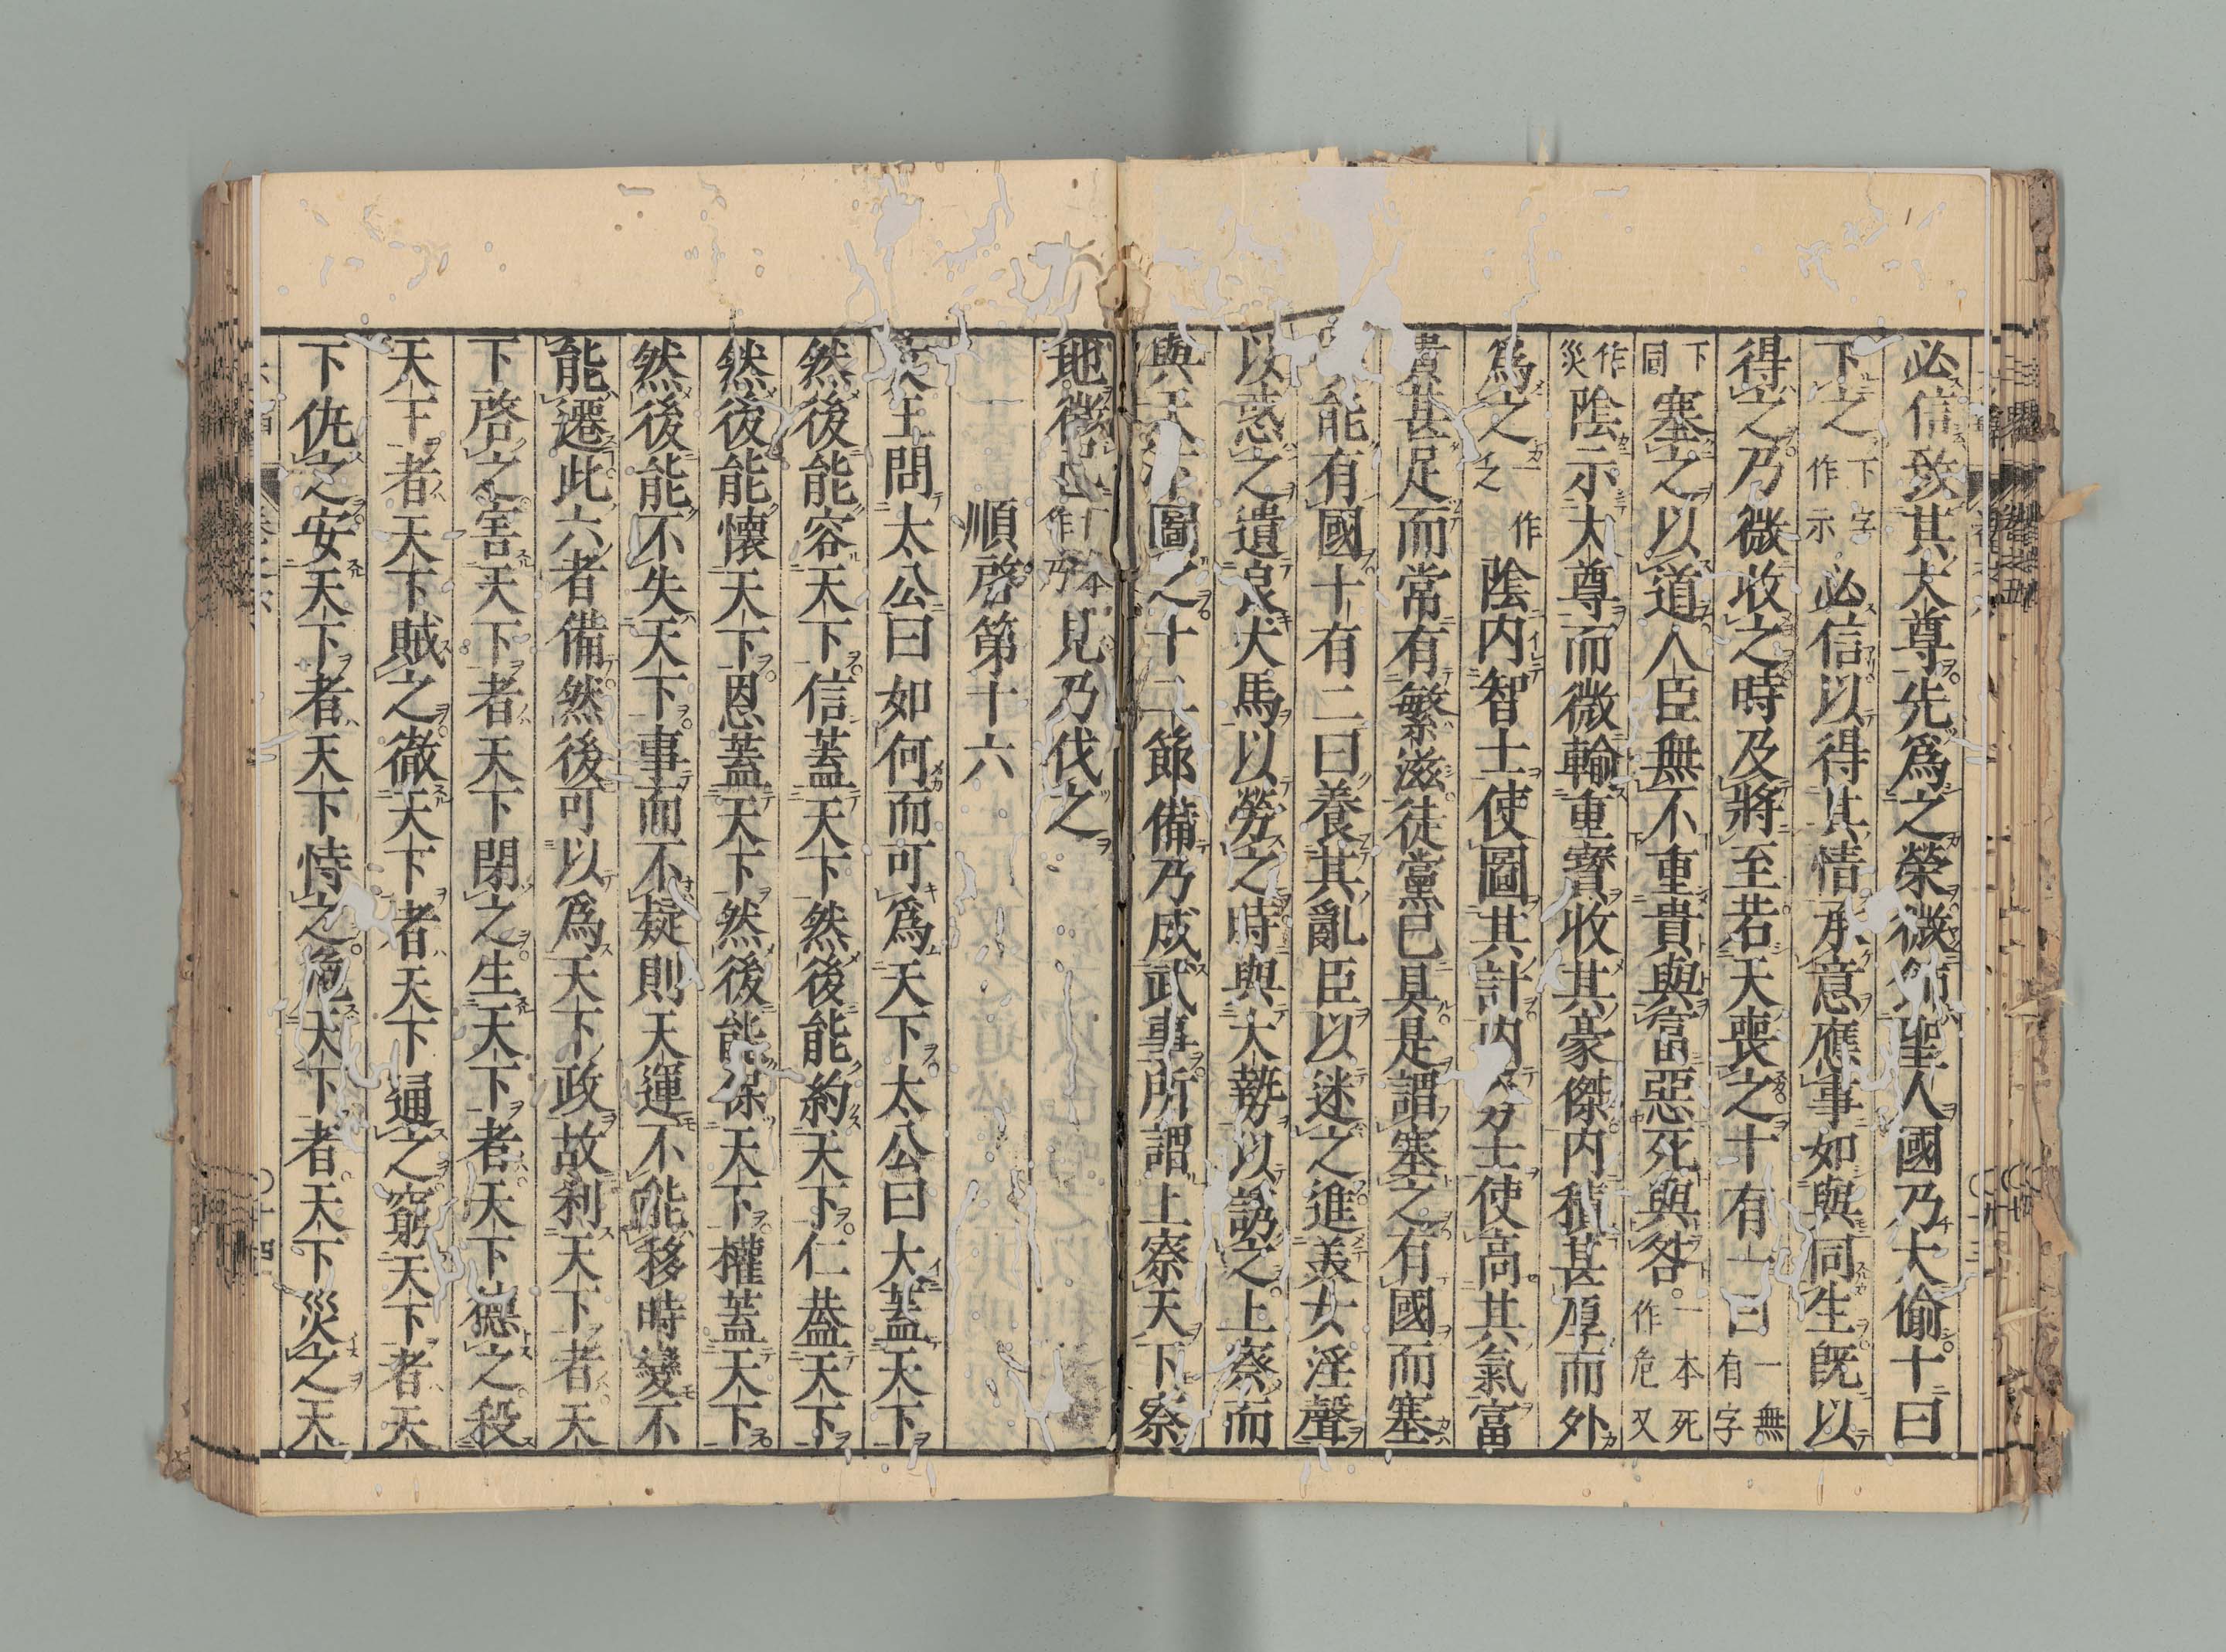 必信致其大尊先爲之榮微飾聖人國乃大偷十曰
下之下字作示必信以得其情承意應事如與同生既以
得之乃微收之時及將至若天喪之十有一曰一無有字
塞之以道人臣無不重貴與富惡死與咎一本死作危又下同
作災陰示大尊而微輸重寶收其豪傑内積甚厚而外
爲之一作乏陰内智士使圖其計内勇士使高其氣富
貴甚足而常有繁滋徒黨已具是謂塞之有國而塞
能有國十有二曰養其亂臣以迷之進美女淫聲
以惑之遺良犬馬以勞之時與大勢以誘之上察而
與天下圖之十二節備乃成武事所謂上察天下察
地徵已一本作乃見乃伐之
順啓第十六
文王問太公曰如何而可爲天下太公曰大蓋天下
然後能容天下信蓋天下然後能約天下仁蓋天下
然後能懷天下恩蓋天下然後能保天下權蓋天下
然後能不失天下事而不疑則天運不能移時變不
能遷此六者備然後可以爲天下政故利天下者天
下啓之害天下者天下閉之生天下者天下德之殺
天下者天下賊之徹天下者天下通之窮天下者天
下仇之安天下者天下恃之危天下者天下災之天